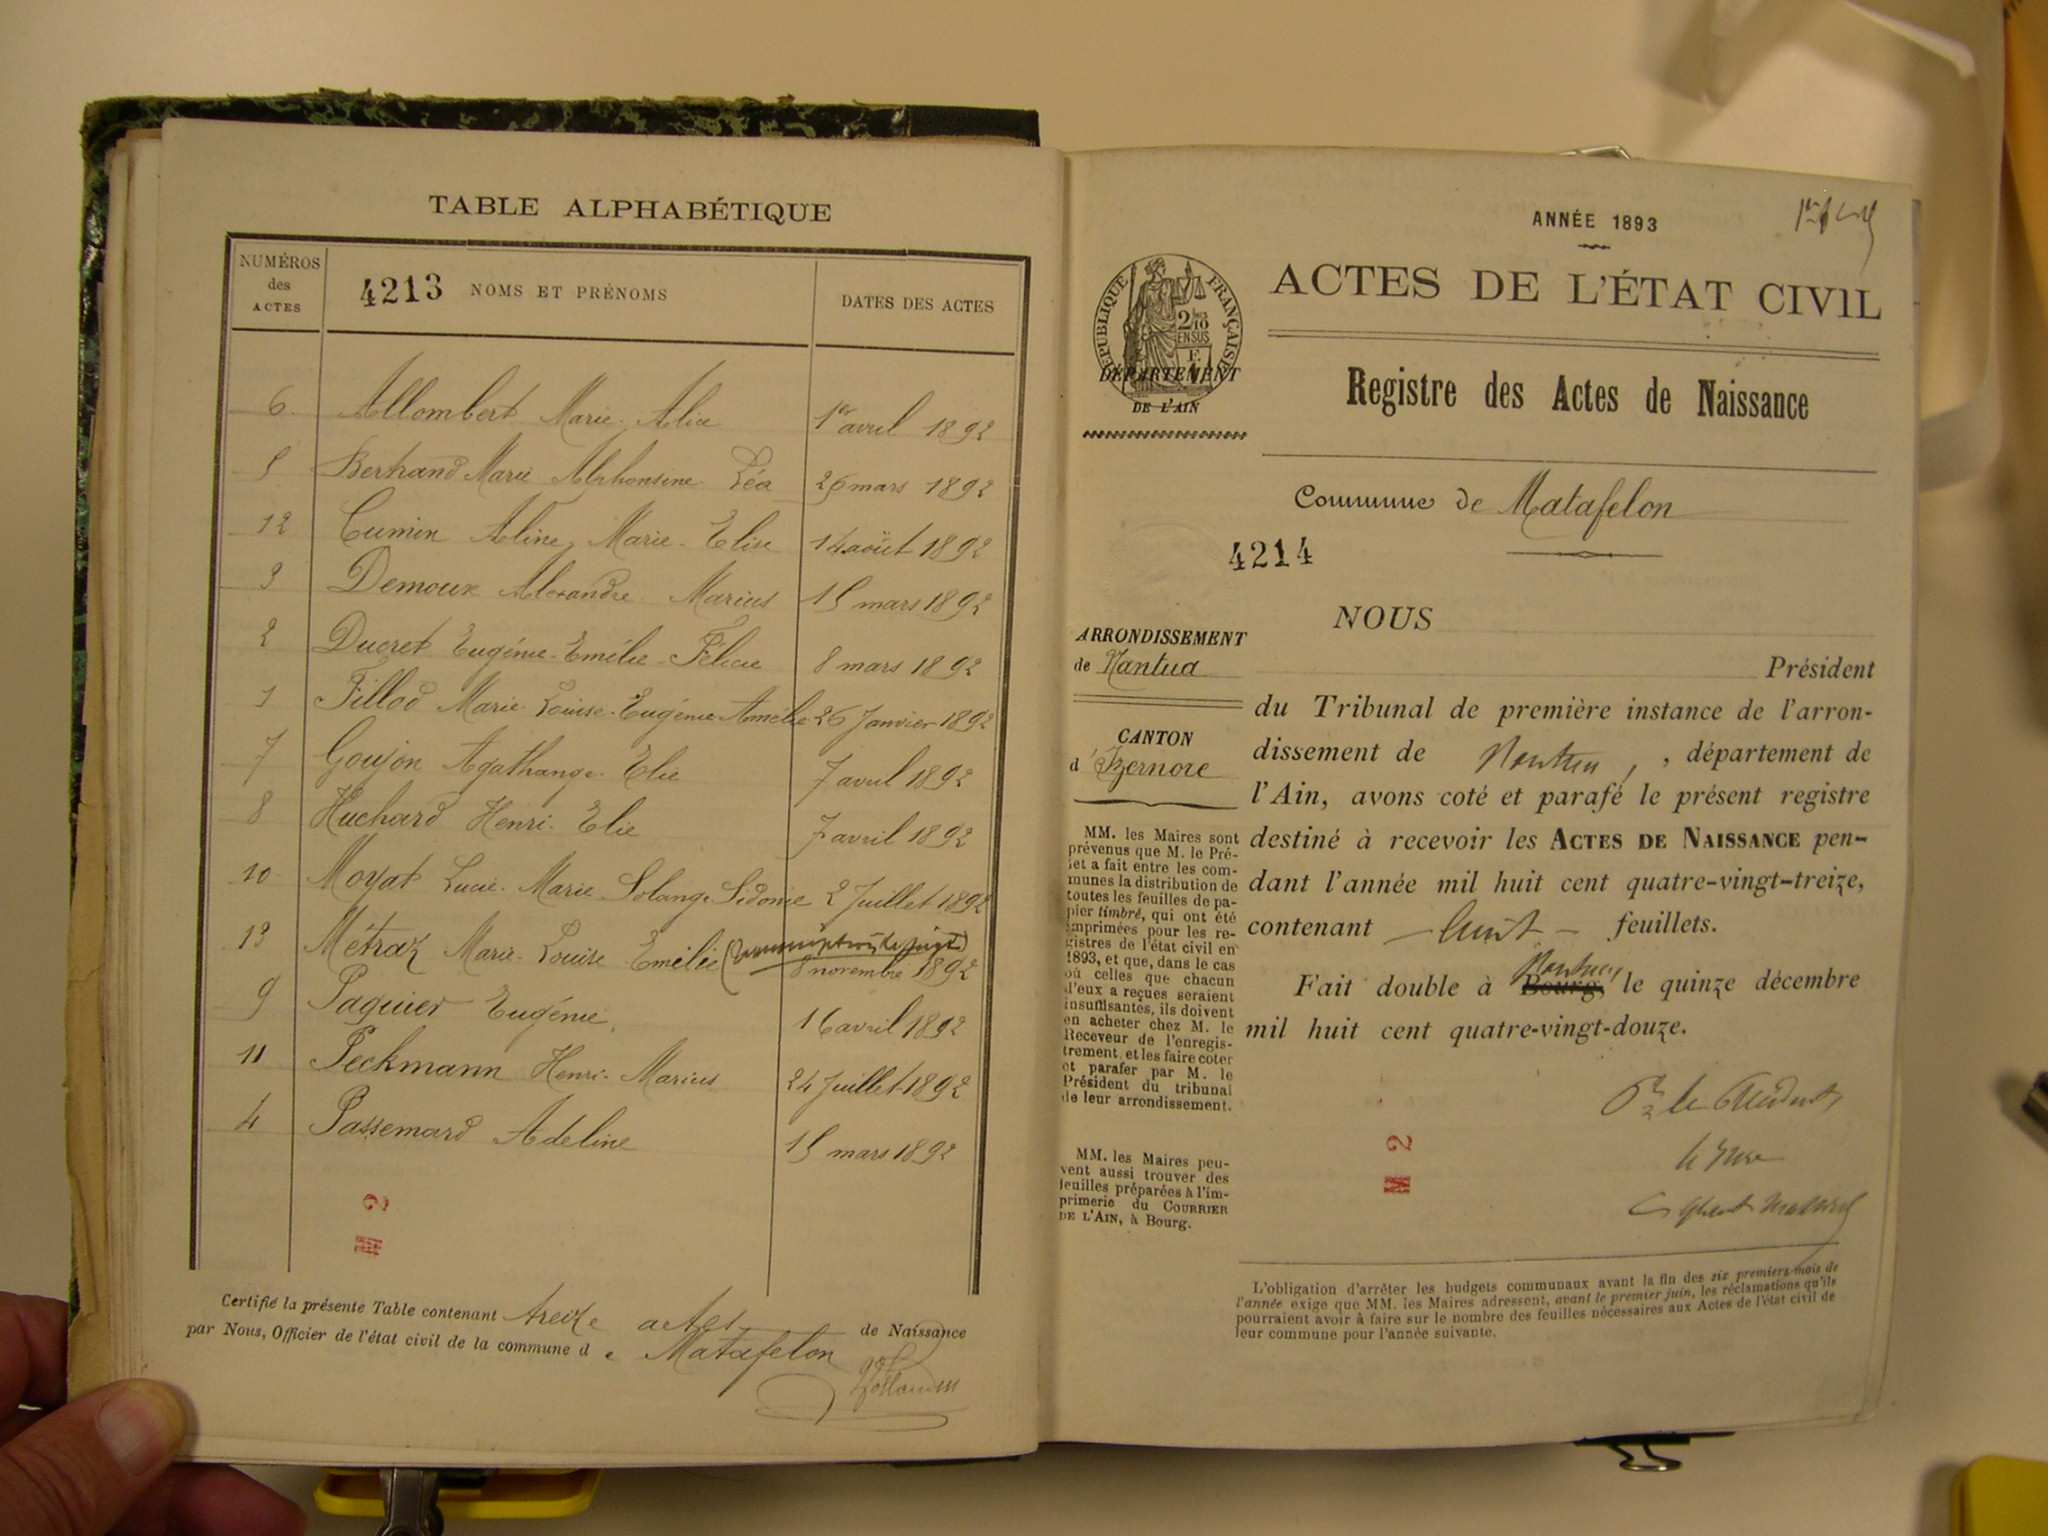 TABLE ALPHABÉTIQUE
NUMÉROS des ACTES
4213 NOMS ET PRÉNOMS
DATES DES ACTES
6 Allombert Marie Alice 1er avril 1892
5 Bertrand Marie Alphonsine Léa 26 mars 1892
12 Cumin Aline, Marie-Elise 14 août 1892
3 Demoux Alexandre Marius 15 mars 1892
2 Ducret Eugénie-Emélie-Félicie 8 mars 1892
1 Fillod Marie-Louise-Eugénie Amélie 26 Janvier 1892
7 Goujon Agathange-Elie 7 avril 1892
8 Huchard Henri-Elie 7 avril 1892
10 Moyat Lucie-Marie-Solange-Sidonie 2 Juillet 1892
13 Métraz Marie-Louise Emélie 8 novembre 1892
9 Paquier Eugénie, 16 avril 1892
11 Peckmann Henri-Marius 24 Juillet 1892
4 Passemard Adeline 15 mars 1892
Certifié la présente Table contenant treize actes de Naissance
par Nous, Officier de l'état civil de la commune de Matafelon
ANNÉE 1893
ACTES DE L'ÉTAT CIVIL
RÉPUBLIQUE FRANÇAISE
2/10 EN SUS
DÉPARTEMENT
DE L'AIN
Registre des Actes de Naissance
Commune de Matafelon
4214
ARRONDISSEMENT
de Nantua
CANTON
d'Izernore
MM. les Maires sont
prévenus que M. le Pré-
fet a fait entre les com-
munes la distribution de
toutes les feuilles de pa-
pier timbré, qui ont été
imprimées pour les re-
gistres de l'état civil en
1893, et que, dans le cas
où celles que chacun
d'eux a reçues seraient
insuffisantes, ils doivent
en acheter chez M. le
Receveur de l'enregis-
trement, et les faire coter
et parafer par M. le
Président du tribunal
de leur arrondissement.
MM. les Maires peu-
vent aussi trouver des
feuilles préparées à l'im-
primerie du COURRIER
DE L'AIN, à Bourg.
NOUS
Président
du Tribunal de première instance de l'arron-
dissement de Nantua, , département de
l'Ain, avons coté et parafé le présent registre
destiné à recevoir les ACTES DE NAISSANCE pen-
dant l'année mil huit cent quatre-vingt-treize,
contenant - huit - feuillets.
Nantua
Fait double à Bourg, le quinze décembre
mil huit cent quatre-vingt-douze.
Pr le Président
le Juge
L'obligation d'arrêter les budgets communaux avant la fin des six premiers mois de
l'année exige que MM. les Maires adressent, avant le premier juin, les réclamations qu'ils
pourraient avoir à faire sur le nombre des feuilles nécessaires aux Actes de l'état civil de
leur commune pour l'année suivante.